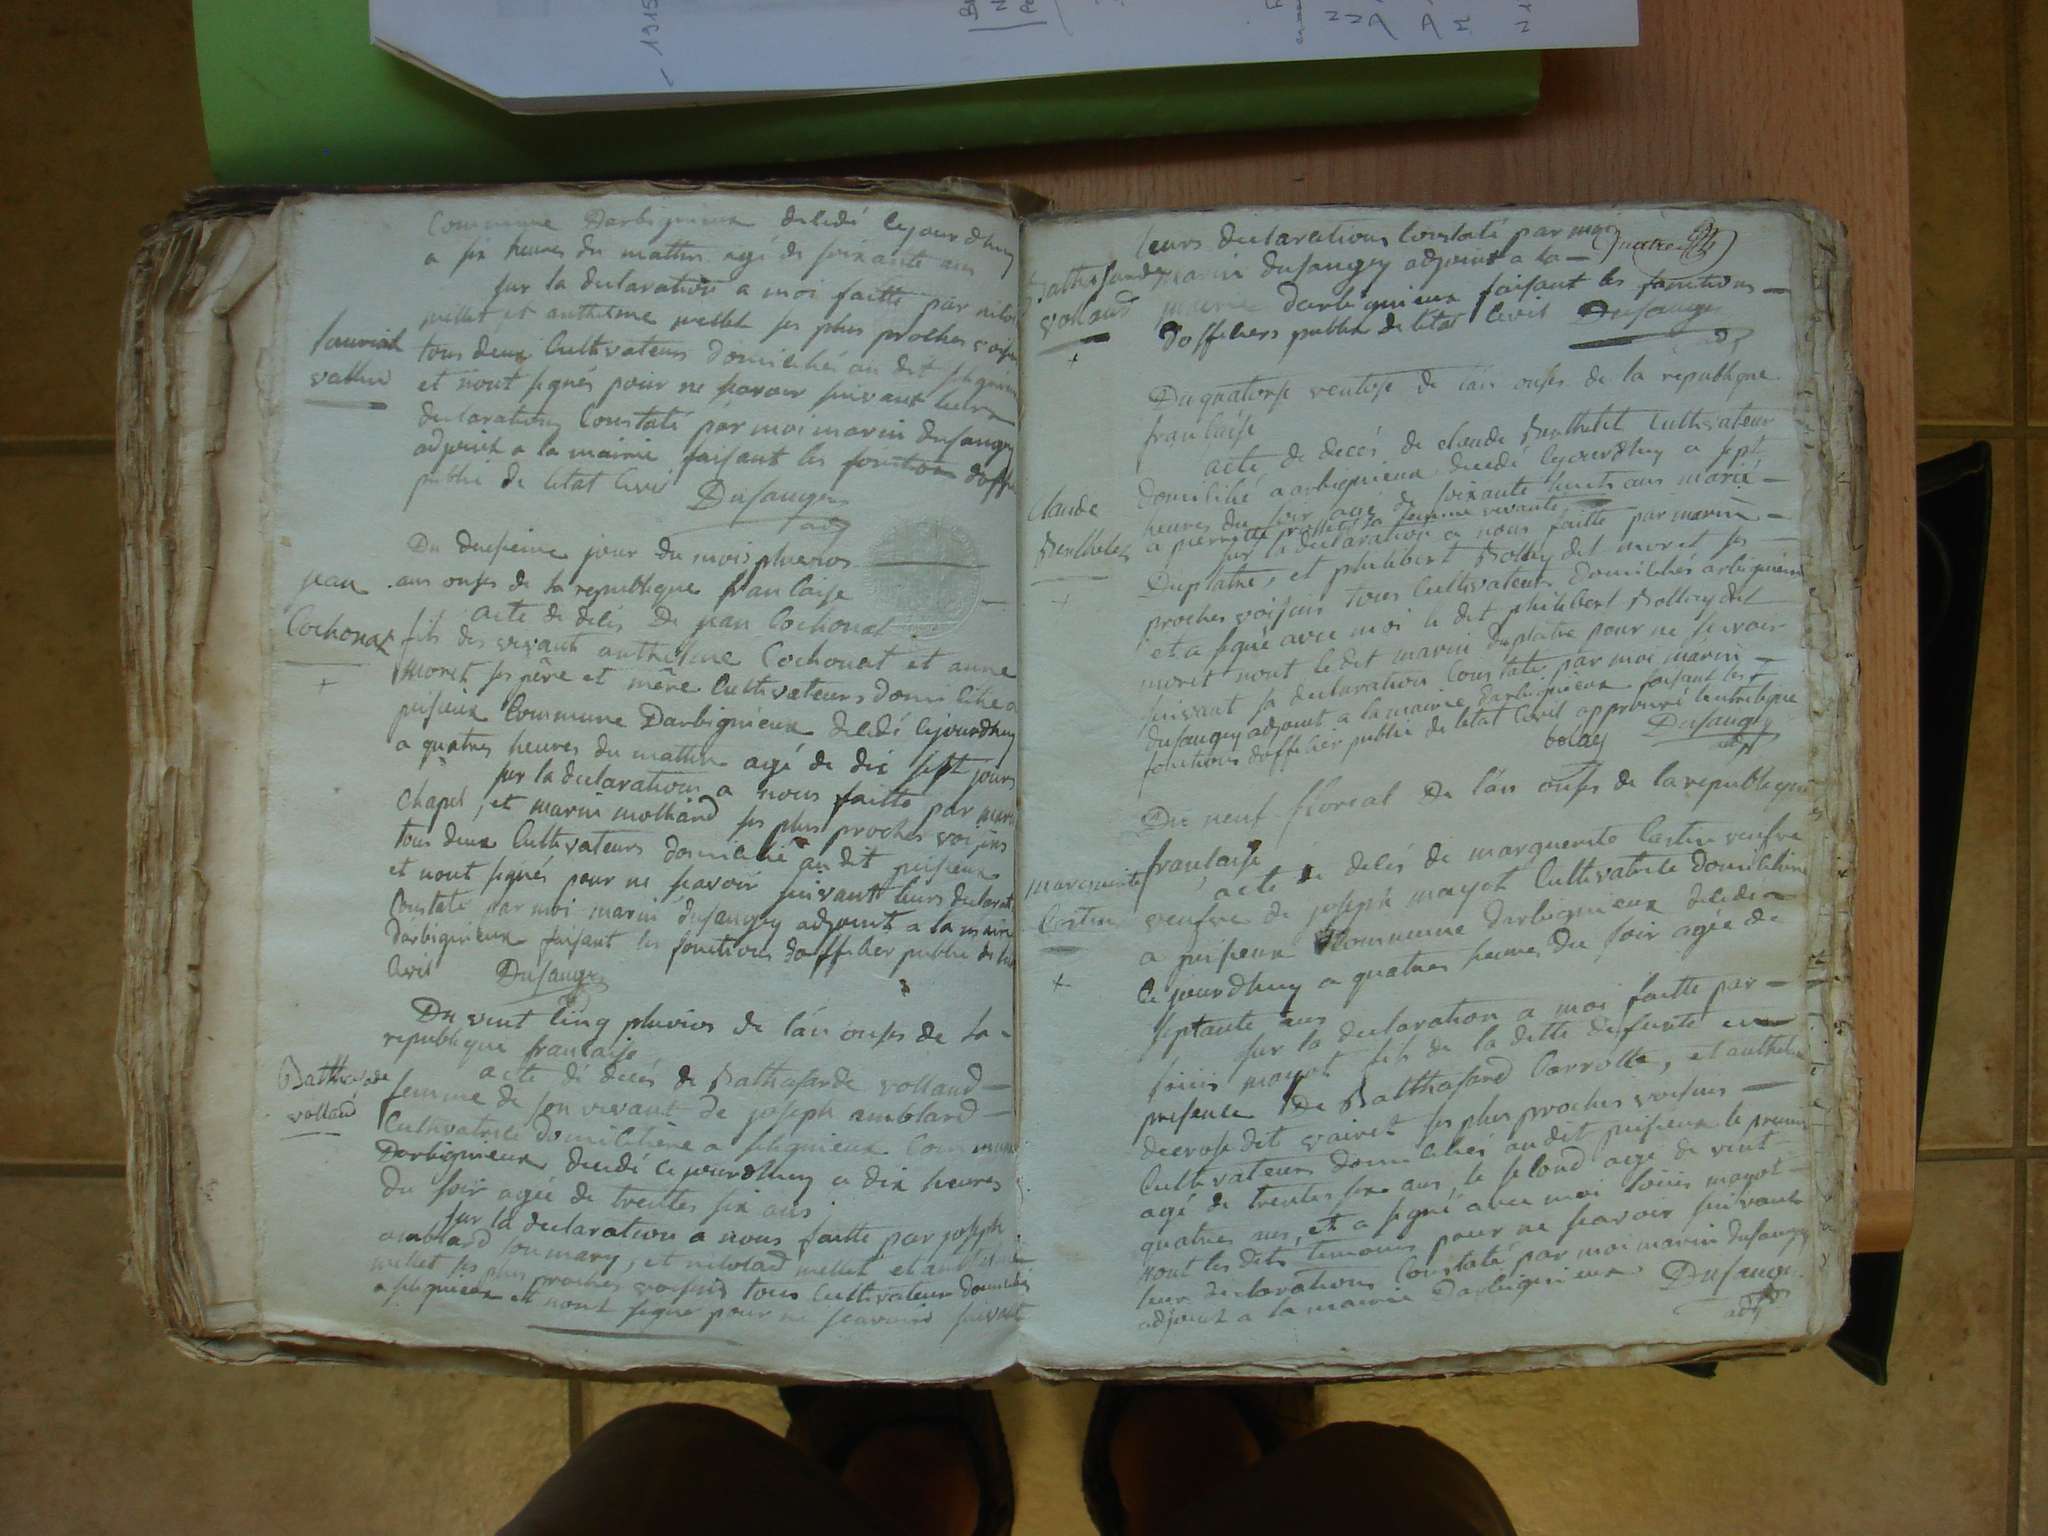 - 1915
Commune Darbignieux decedé cejourdhuy
a six heures du mattin agé de soixante ans
sur la declaration a moi faitte par
mellet et anthelme mellet ses plus proches voisin
tous deux Cultivateurs domiciliés au dit
et nont signés pour ne savoir suivant leurs
declarations Constaté par moi marin Dusaugey
adjoint a la mairie faisant les fonctions doffi
public de letat Civil Dusaugey
adj
vallin
Du jour du mois pluvios
ans onse de la republique francaise
acte de décés De jean Cochonat
fils des vivant anthelme Cochonat et anne
moret ses père et mère Cultivateurs domicilié a
peisieux Commune Darbignieux decedé cejourdhuy
a quatres heures du mattin agé de dix sept jours
sur la declaration a nous faitte par
Chapel, et marin molliard ses plus proches voisins
tous deux Cultivateurs domicilié au dit peisieux
et nont signés pour ne scavoir suivant leurs declarat
Constaté par moi marin dusaugey adjoint a la mairie
darbignieux faisant les fonctions dofficier public de
Civil Dusaugey
jean
Cochonat
+
Du vint Cinq pluvios de lan onse de la -
republique francaise
acte de décés de Bathasarde volland -
femme de son vivant de joseph amblard -
Cultivatrice domicilière a Commune
Darbignieux decedé ce jourdhuy a dix heures
du soir agée de treittes six ans
sur la declaration a nous faitte par joseph
amblard son mary, et mellet et anthelme
mellet ses plus proches voisins tous Cultivateur domiciliés
et nont signé pour ne scavoire suivant
Bathasarde
volland
leurs declarations Constaté par moi
marin dusaugey adjoint a la -
mairie darbignieux faisant les fonctions -
dofficiers public de létat Civil Dusaugey
Bathasarde
volland
+
Du quatorse ventose de lan onse de la république
francaise
acte de decés de claude Berthelet Cultivateur
domicilié a arbignieux decedé cejourdhuy a sept
heures du soir agé de soixante huits ans marié -
a pierrette sa femme vivante
sur la declaration a nous faitte par marin -
Duplatre, et philibert Bolley dit moret ses -
proches voisins tous Cultivateurs domiciliés arbignieux
et a signé avec moi le dit philibert Bolley dit
moret nont le dit marin duplatre pour ne scavoir
suivant sa declaration Constaté par moi marin -
dusaugey adjoint a la mairie darbignieux faisant les
fonctions dofficier public de létat Civil approuvé lentreligne
bolley Dusaugey
adj
Claude
Berthelet
+
Du neuf floreal De lan onse de la republique
francaise
acte de décés de marguerite Cartin veufve
veufve de joseph mayot Cultivatrice domicilière
a peisieux Commune darbignieux decedee
ce jourdhuy a quatres heures du soir agée de
septante ans
sur la declaration a moi faitte par -
louis mayot fils de la ditte defunte en
presence De Balthasard Carrolle, et anthelme
decrose dit vairet ses plus proches voisins -
Cultivateurs domiciliés au dit peisieux le premier
agé de trentes six ans, le second agé de vint
quatres ans, et a signé avec moi louis mayot -
nont les dits temoins pour ne scavoir suivant
leur declarations Constaté par moi marin dusaugey
adjoint a la mairie Darbignieux Dusaugey
adj
marguerite
Cartin
+